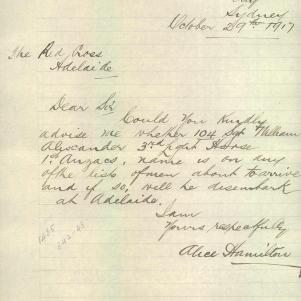 Sydney
October 29th 1917
The Red Cross
Adelaide
Dear Sir
Could You Kindly
advise me whether 104 Sgt William
Alexcander 3rd Light Horse
1st Anzacs, name is on any
of the lists of men about to arrive
and if so, will he disembark
at Adelaide.
I am
Yours respectfully
Alice Hamilton